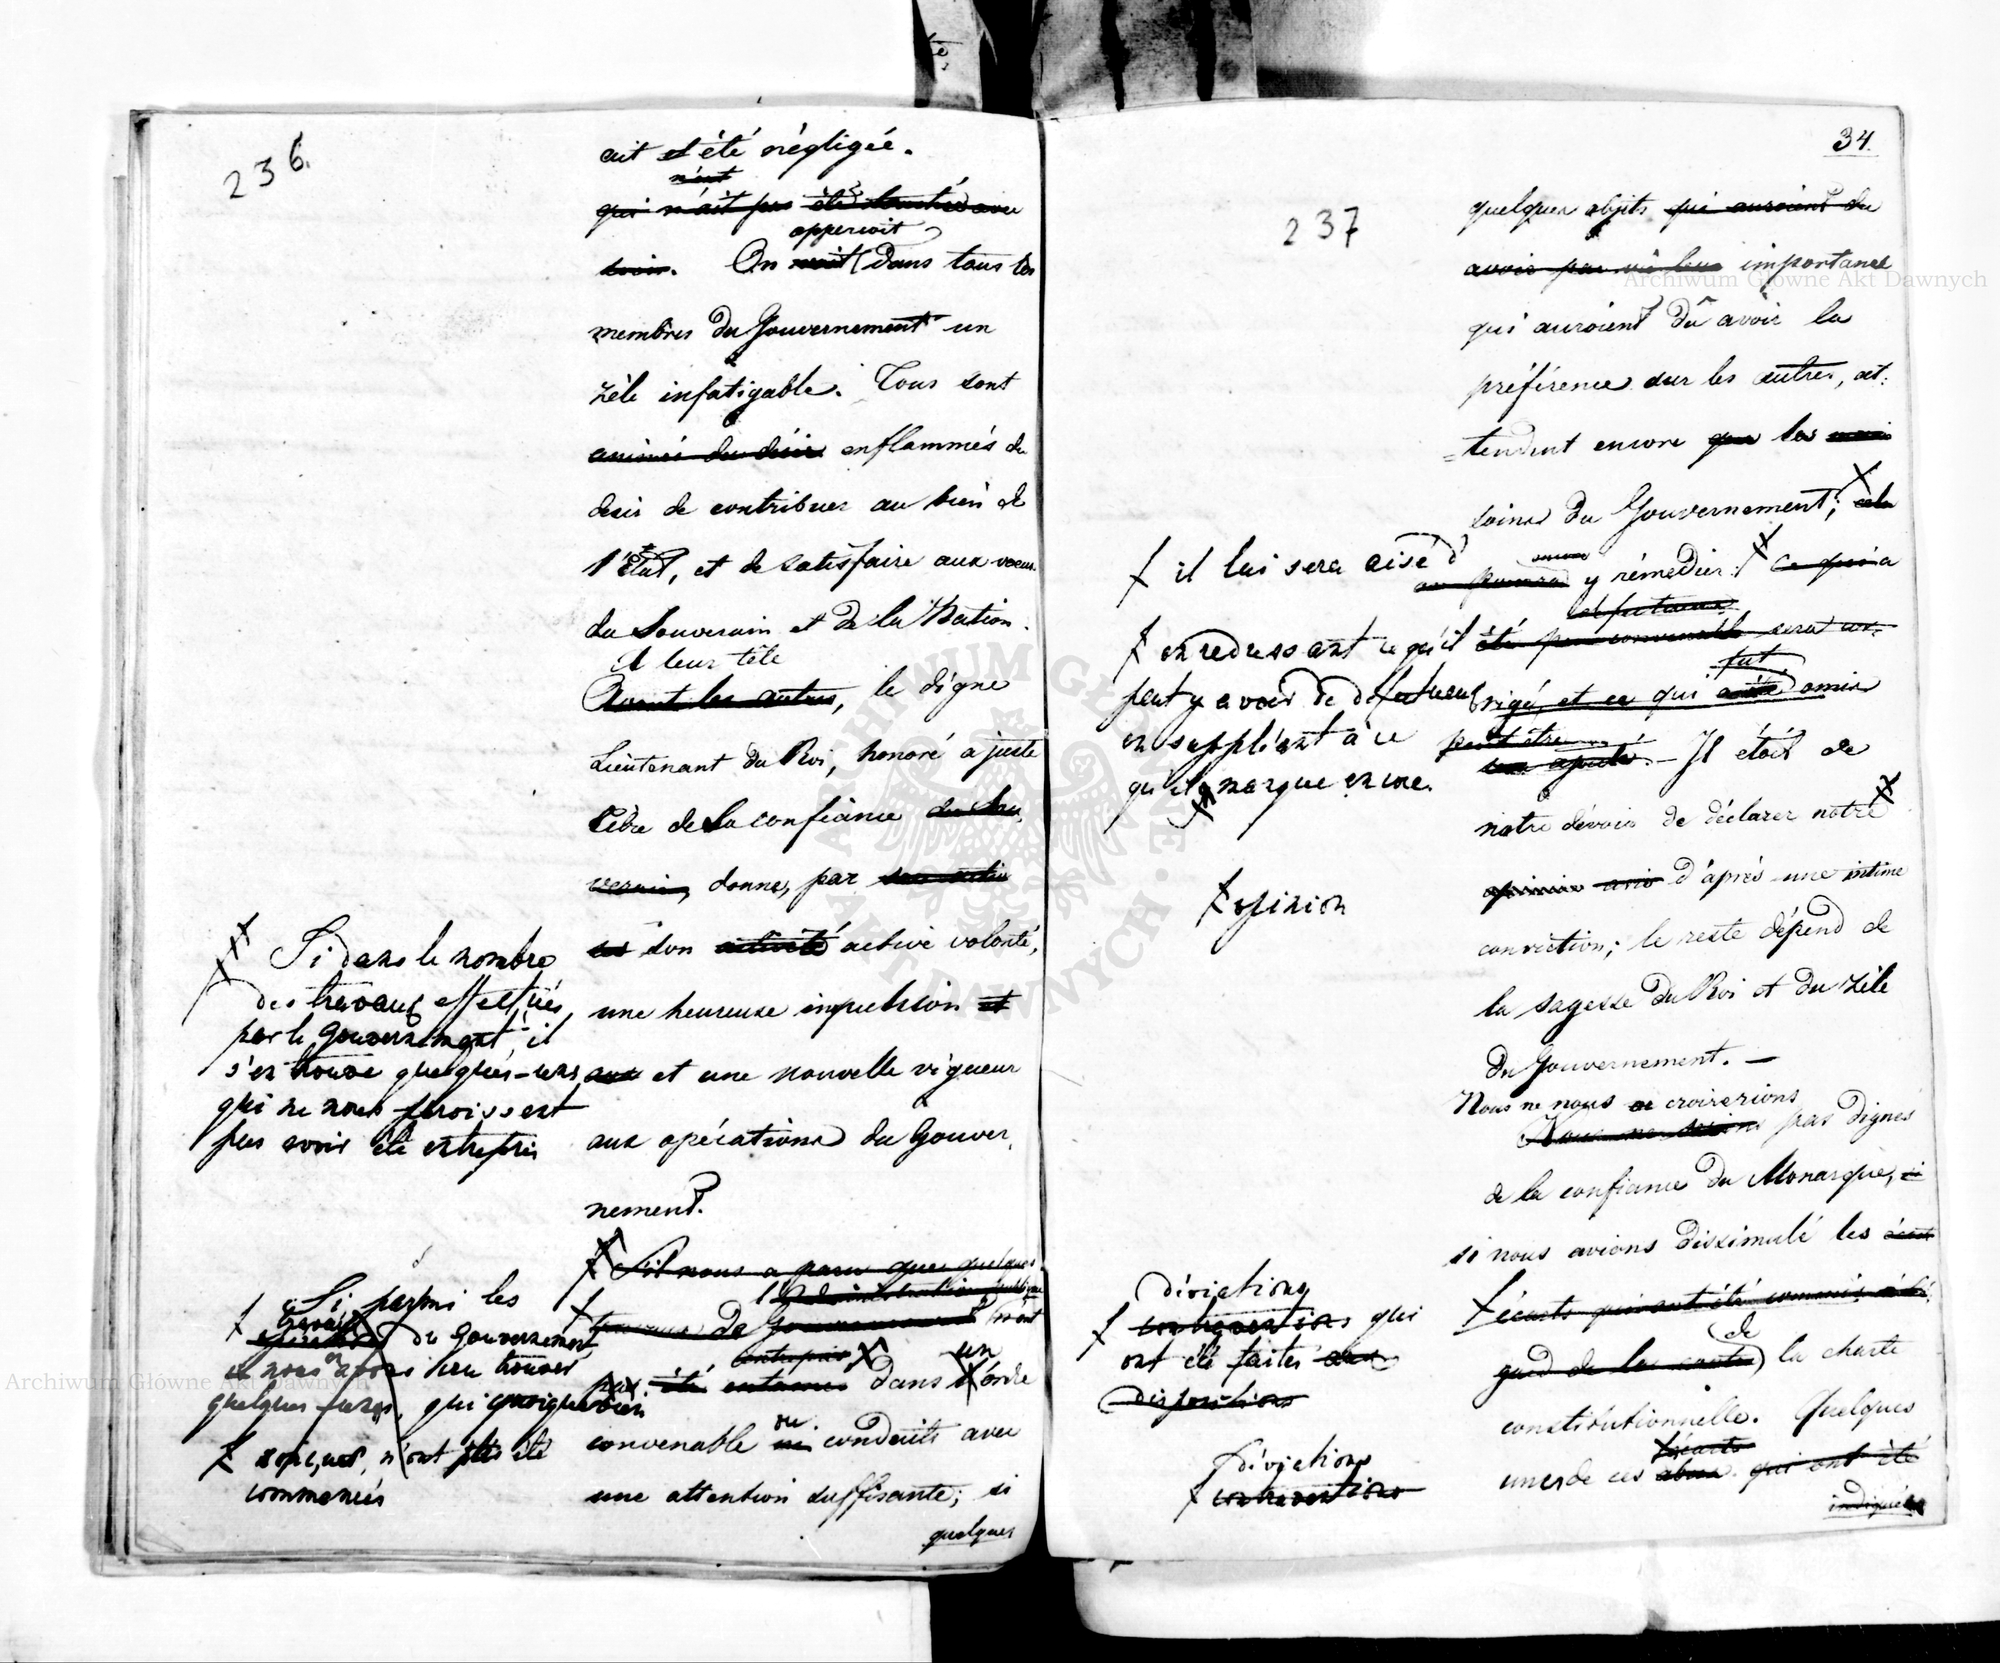 236.
ait été négligée.
n'eut
qui n'ait pas été touchée avec
apperçoit
soin. On voit dans tous les
membres du Gouvernement un
zèle infatigable. Tous sont
animés du désir enflammés du
desir de contribuer au bien de
l'État, et de satisfaire aux voeux
du Souverain et de la Nation.
A leur tête
Avant les autres, le digne
Lieutenant du Roi, honoré a juste
titre de sa confiance du Sou,
verain, donne, par
son activité active volonté,
une heureuse impulsion et
aux et une nouvelle vigueur
aux opérations du Gouver,
nement.
S'il nous a paru que quelques
l'administration publique
travaux de Gouvernement n'ont
entrepris un
pas été entamés dans l'ordre
ou
convenable ni conduits avec
une attention suffisante; si
quelques
Si dans le nombre
des travaux effectués
par le Gouvernement, il
s'en trouve quelques-uns
qui ne nous paroissent
pas avoir été entrepris
Si parmi les
travaux
opérations du Gouvernement
nous avons cru trouver
quelques unes, qui quoique bien
conçues, n'ont pas été
commencés
34.
237
quelques objets qui auroient du
avoir par vû leur importance
qui auroient dû avoir la
préférence sur les autres, at:
=tendent encore que les
soins du Gouvernement; cela
il lui sera aisé d'
encore
on pourra y rémedier: Ce qui a
défectueux
été peu convenable sera cor:
fut
rigé, et ce qui a été omis
peut être
sera ajouté. — Il étoit de
en redressant ce qu'il
peut y avoir de defectueux
en suppléant à ce
qu'il manque encore.
notre devoir de déclarer notre
opinion
opinion avis d'après une intime
conviction; le reste dépend de
la sagesse du Roi et du zèle
du Gouvernement. —
Nous ne nous croirions
Nous ne serions pas dignes
de la confiance du Monarque, si
si nous avions dissimulé les écart
déviations
contraventions qui
ont été faites aux
dispositions
écarts qui ont été commis à l'é:
de
gard de la charte la charte
constitutionnelle. Quelques
écarts
unes de ces abus qui ont été
indiqués
déviations
contraventions